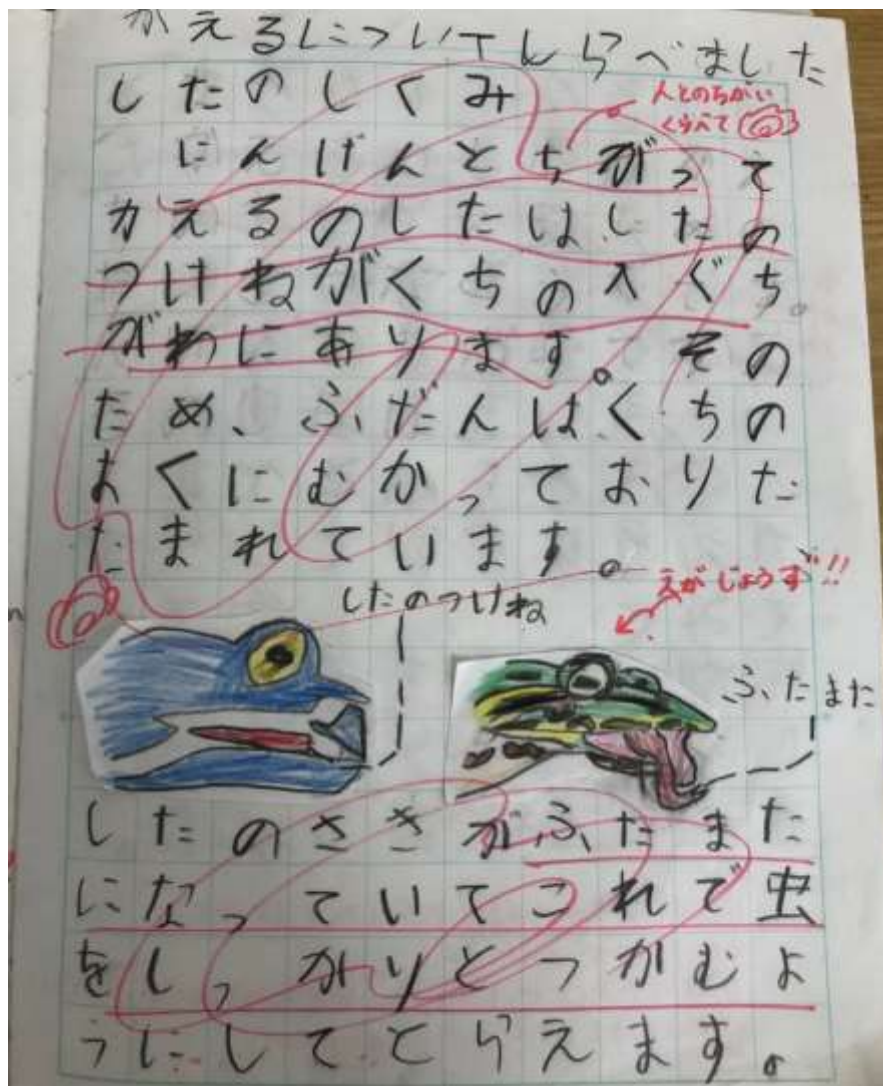 かえるについてしらべました
したのしくみ
人とのちがい
くらべて
にんげんとちがって
かえるのしたはしたの
つけねがくちの入ぐち
がわにあります。その
ため、ふだんはくちの
おくにむかっておりた
たまれています。
えがじょうず!!
したのつけね
ふたまた
したのさきがふたまた
になっていてこれで虫
をしっかりとつかむよ
うにしてとらえます。